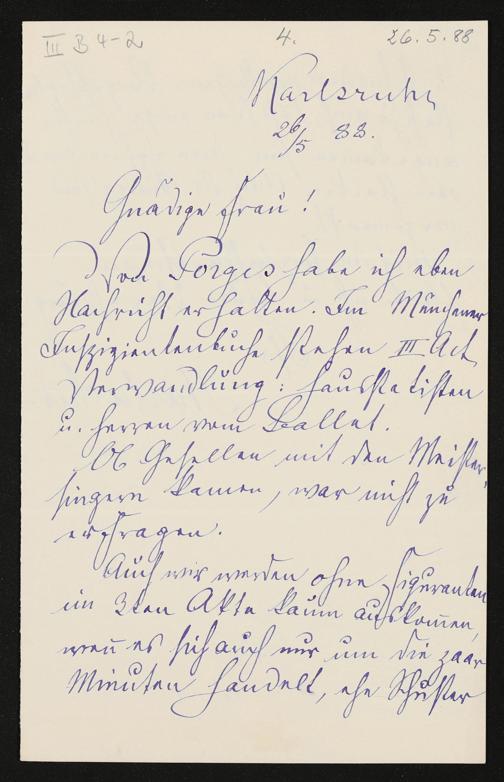 III B 4-2
4.
26.5.88
Karlsruhe
26/5 88.
Gnädige Frau!
Von Porges habe ich eben
Nachricht erhalten. Im Münchener
Inspizientenbuche stehen III Act
Verwandlung: Hausstatisten
u. Herren vom Ballet.
Ob Gesellen mit den Meister-
singern kamen, war nicht zu
erfragen.
Auch wir werden ohne Figuranten
im 3ten Akte kaum auskommen,
weñ es sich auch nur um die paar
Minuten handelt, ehe Schuster